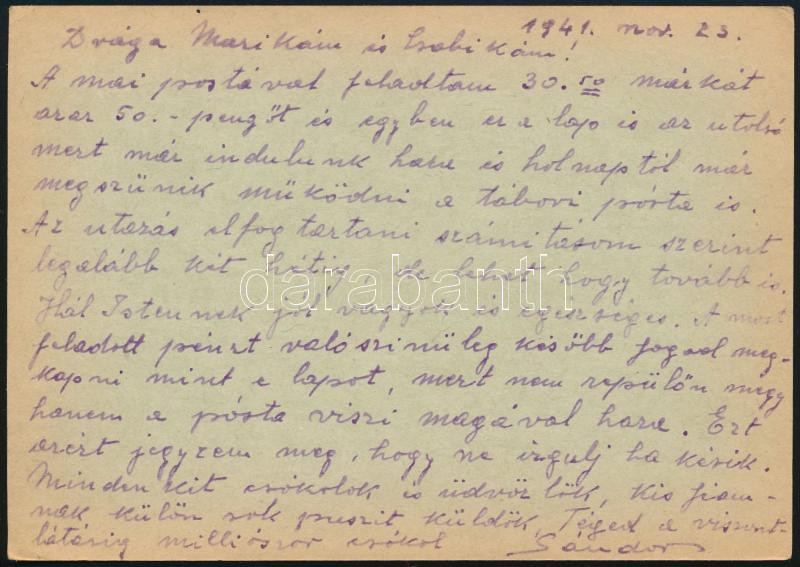 1941. nov. 23.
Drága Marikám és Csabikám!
A mai postával feladtam 30.50 márkát
azaz 50.- pengőt és egyben ez a lap is az utolsó
mert már indulunk haza és holnaptól már
megszünik müködni a tábori pósta is.
Az utazás elfog tartani számitásom szerint
legalább két hétig de lehet hogy tovább is.
Hál Istennek jól vagyok és egészséges. A most
feladott pénzt valószinüleg később fogod meg-
kapni mint e lapot, mert nem repülőn megy
hanem a pósta viszi magával haza. Ezt
azért jegyzem meg, hogy ne izgulj ha késik.
Mindenkit csókolok és üdvözlök, kis fiam-
nak külön sok puszit küldök, Téged a viszont-
látásig milliószor csókol Sándor
darabanth